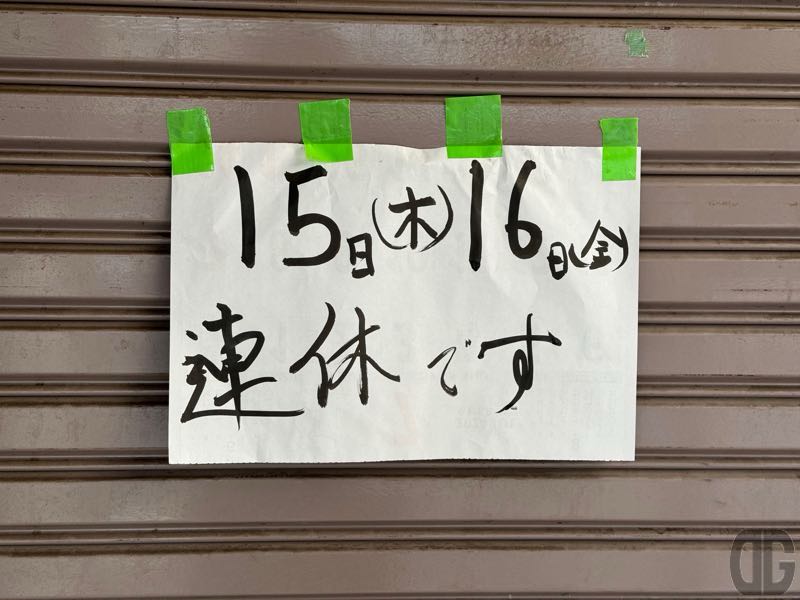 15日(木)16日(金)
連休です
DG